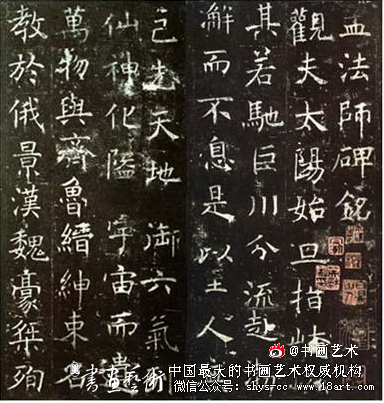 孟法師碑銘
觀夫太陽始旦指崦
其若馳巨川分流赴渤
澥而不息是以至人
己先天地御六氣
仙神化隘宇宙而貴
萬物與齊魯縉紳束名
教於俄景漢魏豪桀殉
@书画艺术
書畫藝術
中国最大的书画艺术权威机构
微信公众号：shysrcc www.18art.com